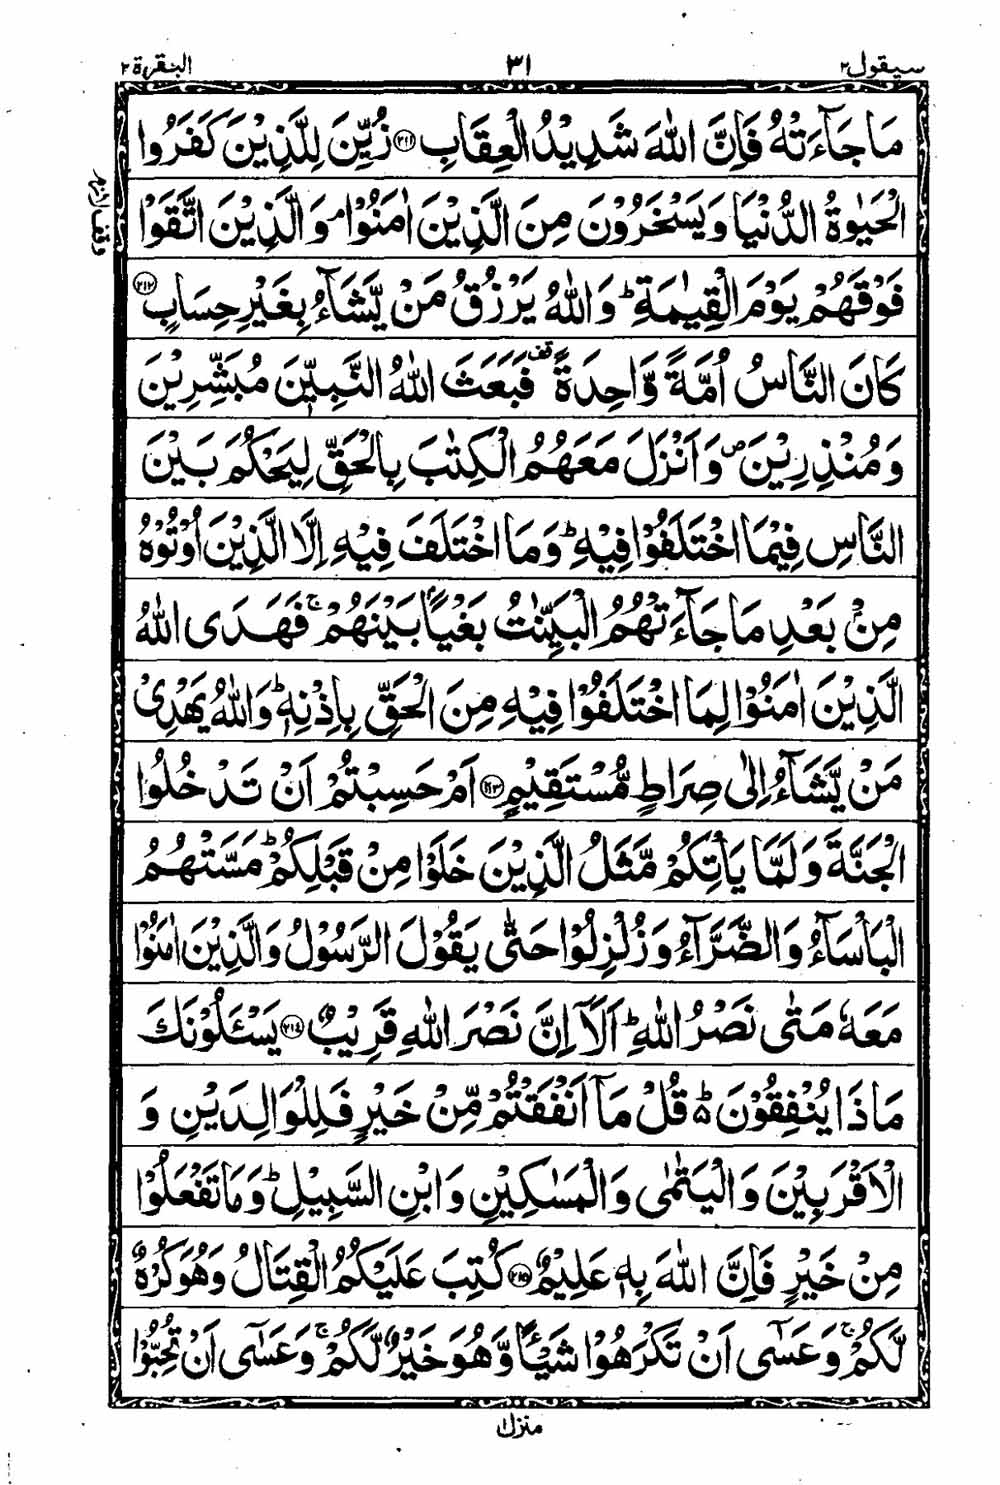 سيقول ٢ ٣١ البقرة ٢
مَا جَآءَتْهُ فَاِنَّ اللّٰهَ شَدِيْدُ الْعِقَابِ ﴿٢١١﴾ زُيِّنَ لِلَّذِيْنَ كَفَرُوا
الْحَيٰوةُ الدُّنْيَا وَيَسْخَرُوْنَ مِنَ الَّذِيْنَ اٰمَنُوْا ۘ وَالَّذِيْنَ اتَّقَوْا
فَوْقَهُمْ يَوْمَ الْقِيٰمَةِ ؕ وَاللّٰهُ يَرْزُقُ مَنْ يَّشَآءُ بِغَيْرِ حِسَابٍ ﴿٢١٢﴾
كَانَ النَّاسُ اُمَّةً وَّاحِدَةً قف فَبَعَثَ اللّٰهُ النَّبِيّٖنَ مُبَشِّرِيْنَ
وَمُنْذِرِيْنَ ص وَاَنْزَلَ مَعَهُمُ الْكِتٰبَ بِالْحَقِّ لِيَحْكُمَ بَيْنَ
النَّاسِ فِيْمَا اخْتَلَفُوْا فِيْهِ ؕ وَمَا اخْتَلَفَ فِيْهِ اِلَّا الَّذِيْنَ اُوْتُوْهُ
مِنْۢ بَعْدِ مَا جَآءَتْهُمُ الْبَيِّنٰتُ بَغْيًاۢ بَيْنَهُمْ ۚ فَهَدَى اللّٰهُ
الَّذِيْنَ اٰمَنُوْا لِمَا اخْتَلَفُوْا فِيْهِ مِنَ الْحَقِّ بِاِذْنِهٖ ؕ وَاللّٰهُ يَهْدِيْ
مَنْ يَّشَآءُ اِلٰى صِرَاطٍ مُّسْتَقِيْمٍ ﴿٢١٣﴾ اَمْ حَسِبْتُمْ اَنْ تَدْخُلُوا
الْجَنَّةَ وَلَمَّا يَاْتِكُمْ مَّثَلُ الَّذِيْنَ خَلَوْا مِنْ قَبْلِكُمْ ؕ مَسَّتْهُمُ
الْبَاْسَآءُ وَالضَّرَّآءُ وَزُلْزِلُوْا حَتّٰى يَقُوْلَ الرَّسُوْلُ وَالَّذِيْنَ اٰمَنُوْا
مَعَهٗ مَتٰى نَصْرُ اللّٰهِ ؕ اَلَآ اِنَّ نَصْرَ اللّٰهِ قَرِيْبٌ ﴿٢١٤﴾ يَسْـَٔلُوْنَكَ
مَاذَا يُنْفِقُوْنَ ؕ قُلْ مَآ اَنْفَقْتُمْ مِّنْ خَيْرٍ فَلِلْوَالِدَيْنِ وَ
الْاَقْرَبِيْنَ وَالْيَتٰمٰى وَالْمَسٰكِيْنِ وَابْنِ السَّبِيْلِ ؕ وَمَا تَفْعَلُوْا
مِنْ خَيْرٍ فَاِنَّ اللّٰهَ بِهٖ عَلِيْمٌ ﴿٢١٥﴾ كُتِبَ عَلَيْكُمُ الْقِتَالُ وَهُوَ كُرْهٌ
لَّكُمْ ۚ وَعَسٰٓى اَنْ تَكْرَهُوْا شَيْـًٔا وَّهُوَ خَيْرٌ لَّكُمْ ۚ وَعَسٰٓى اَنْ تُحِبُّوْا
منزل ١